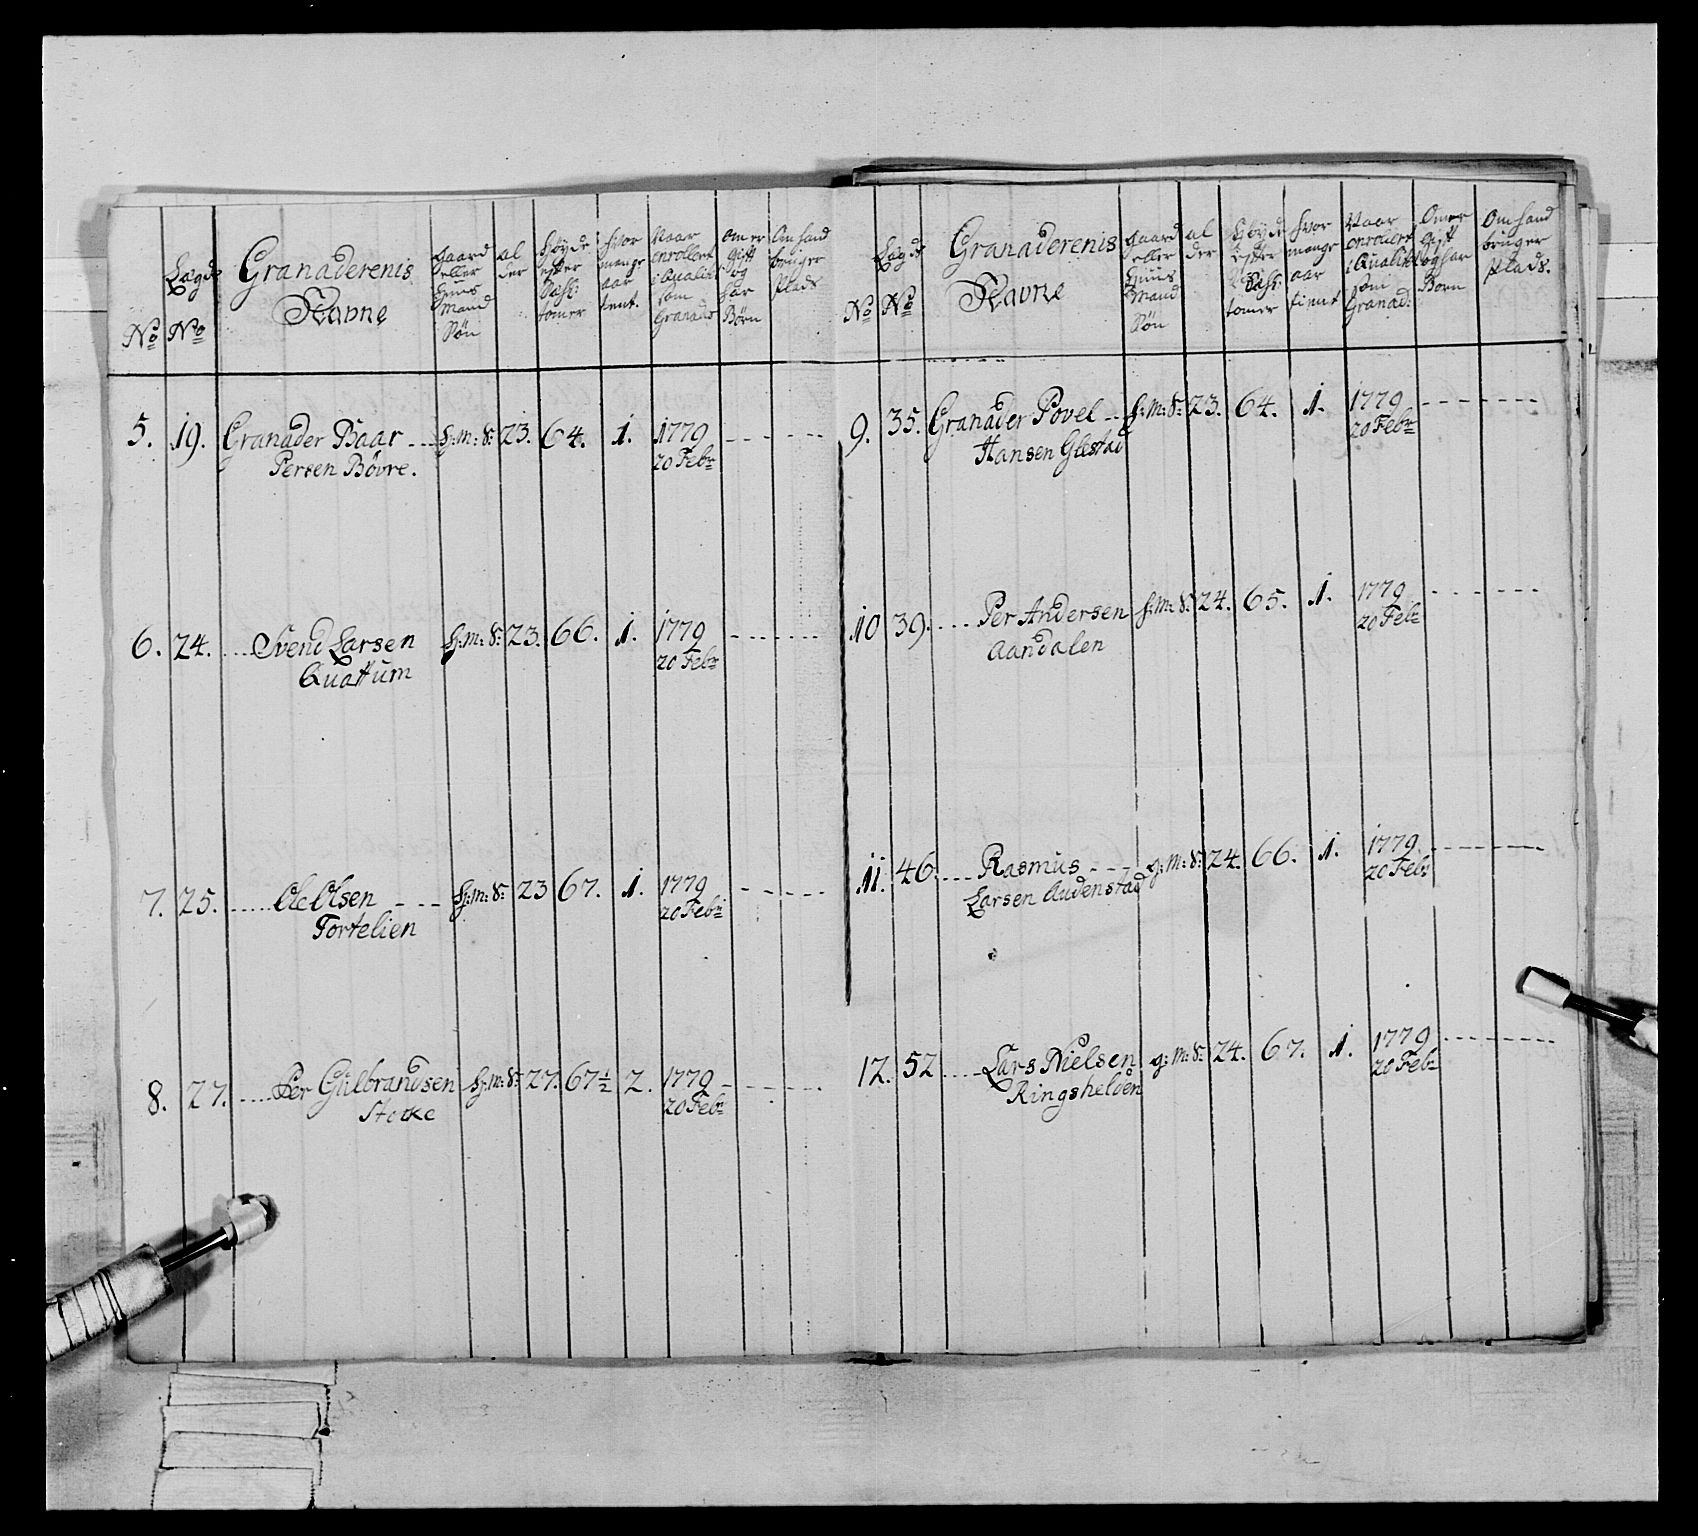 No
Lægds No
Granaderenis Navne
Gaard eller Huus Mand Søn
al der
Høyde efter Dahl: tomer
hvor mange aar tient.
Naar enrollert i Qualitet som Granad:
Om er gift og har Børn
Om hand bruger Plads
5. 19. Granader Baar ... h: m: s: 23. 64. 1. 1779 - - - - -
Persen Bövre. 20 Febr
6. 24. .... Svend Larsen h: m: s: 23. 66. 1. 1779 - - - - -
Quattum 20 Febr
7. 25. ..... Ole Olsen - - - h: m: s: 23 67. 1. 1779 - - - - -
Tortelien 20 Febr
8. 27. .... Per Gulbrandsen h: m: s: 27. 67½ 2. 1779 - - - - -
Stokke 20 Febr
No
Lægds No
Granaderenis Navne
Gaard eller Huus Mand Søn
al der
Høyde efter Dahl: tomer
hvor mange aar tient
Naar enrollert i Qualitet som Granad:
Om er Gift og har Born
Om hand bruger Plads.
9. 35. Granader Povel ... h: m: s: 23. 64. 1. 1779 - - - - -
Hansen Glestad 20 Febr
10 39. .... Per Andersen h: m: s: 24. 65. 1. 1779 - - - - -
Aandalen 20 Febr
11. 46. .... Rasmus - - - g: m: s: 24. 66. 1. 1779 - - - - -
Larsen Audenstad 20 Febr
12. 52 .... Lars Nielsen g: m: s: 24. 67. 1. 1779 - - - - -
Ringshelden 20 Febr